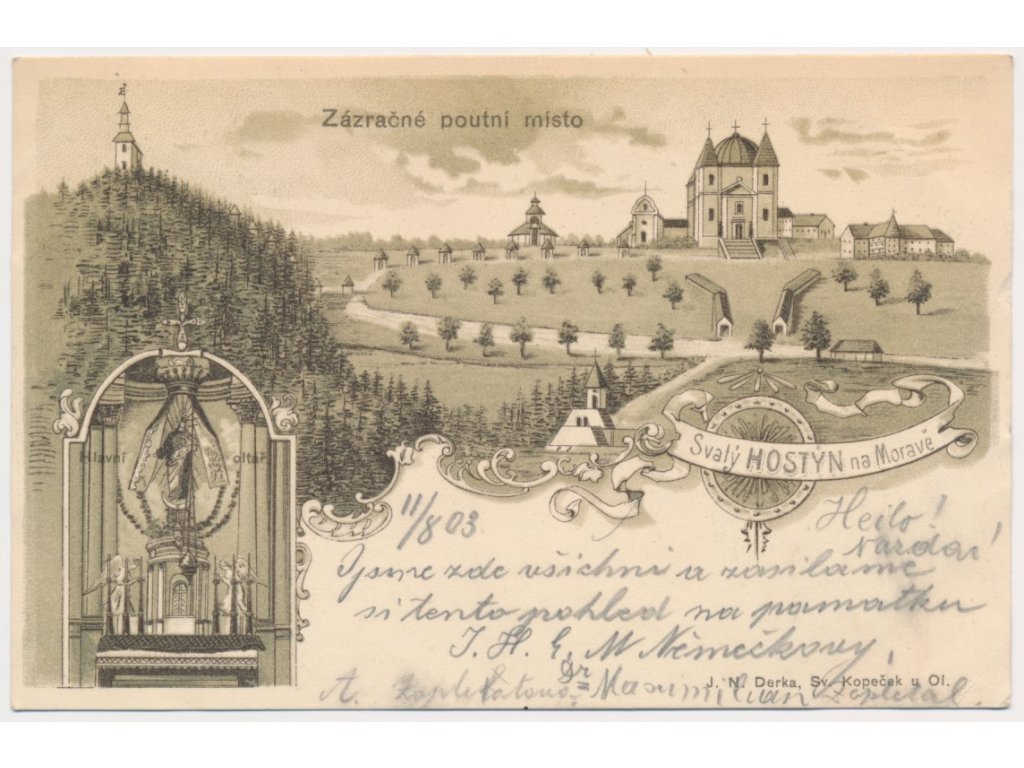 Zázračné poutní místo
Hlavní oltář
Svatý HOSTÝN na Moravě
11/8 03
Heilo!
Nazdar!
Jsme zde všichni a zasíláme
si tento pohled na památku
J. H. E. M Němečkovy,
A. Zapletalova Dr Maxmilian Zapletal.
J. N. Derka, Sv. Kopeček u Ol.